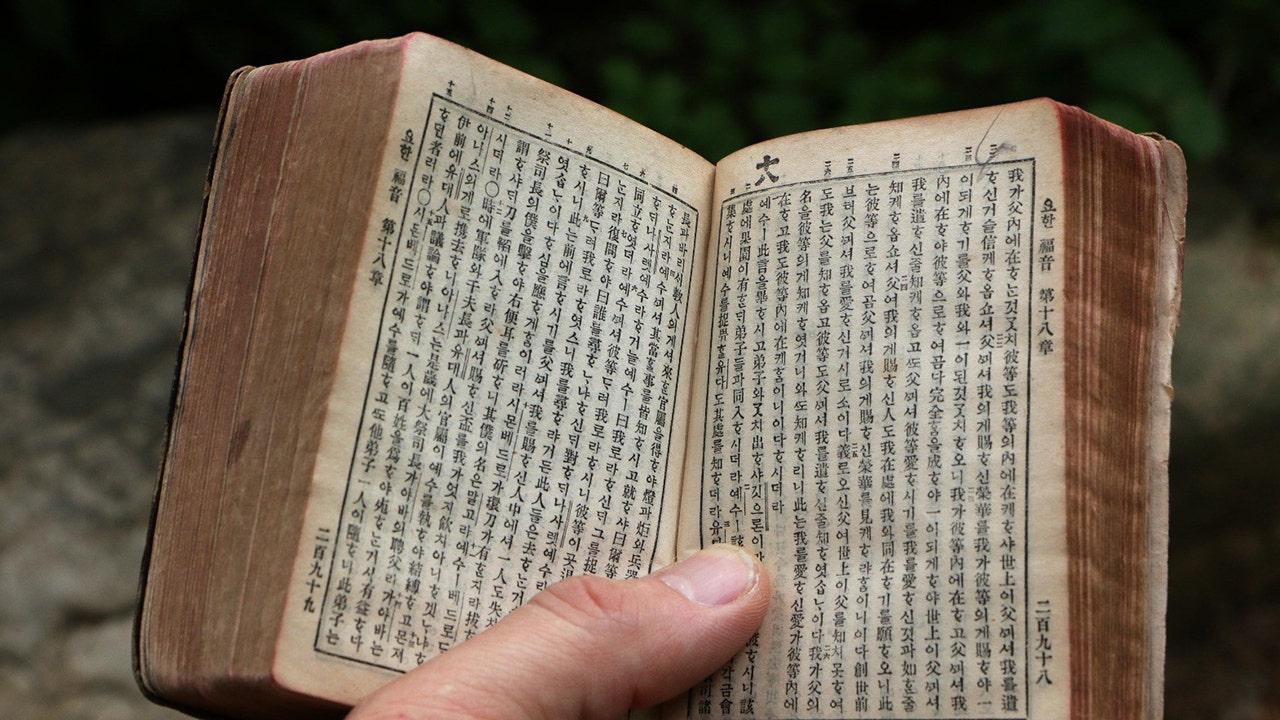 요한 福音 第十八章 二百九十八
我가父內에在ᄒᆞᆫ것ᄀᆞᆺ치彼等도我等의內에在케ᄒᆞ샤世上이父ᄭᅴ셔我를遣
ᄒᆞ신거슬信케ᄒᆞ옵쇼셔父ᄭᅴ셔我의게賜ᄒᆞ신榮華를我가彼等의게賜ᄒᆞ야一
이되게ᄒᆞ기를父와我와一이된것ᄀᆞᆺ치ᄒᆞ오니我가彼等內에在ᄒᆞ고父ᄭᅴ셔我
內에在ᄒᆞ야彼等으로ᄒᆞ여곰다完全ᄒᆞᆷ을成ᄒᆞ야一이되게ᄒᆞ야世上이父ᄭᅴ셔
我를遣ᄒᆞ신줄知케ᄒᆞ옵고ᄯᅩ父ᄭᅴ셔彼等愛ᄒᆞ시기를我를愛ᄒᆞ신것과如ᄒᆞᆫ줄
知케ᄒᆞ옵쇼셔父여我의게賜ᄒᆞ신人도我在處에我와同在ᄒᆞ기를願ᄒᆞ오니此
는彼等으로ᄒᆞ여곰父ᄭᅴ셔我의게賜ᄒᆞ신榮華를見케ᄒᆞ랴ᄒᆞᆷ이니이다創世前
브터父ᄭᅴ셔我를愛ᄒᆞ신거시로소이다義로오신父여世上이父를知치못ᄒᆞ여
도我는父를知ᄒᆞ옵고彼等도父ᄭᅴ셔我를遣ᄒᆞ신줄知ᄒᆞ엿삽ᄂᆞ이다我가父의
名을彼等의게知케ᄒᆞ엿거니와ᄯᅩ知케ᄒᆞ리니此는我를愛ᄒᆞ신愛가彼等內에
在ᄒᆞ고我도彼等內에在케ᄒᆞᆷ이니이다ᄒᆞ시더라
十八
예수ㅣ此言을畢ᄒᆞ시고弟子와ᄀᆞᆺ치出ᄒᆞ샤깃으론이
處에果園이有ᄒᆞᆫᄃᆡ弟子들과同入ᄒᆞ시더라예수ㅣ該 ᄒᆞ시니該
集ᄒᆞ시니예수를捉與ᄒᆞᆯ유다도其處를知ᄒᆞ더라 各金會
長과바리서敎人의게셔來ᄒᆞᆫ官屬을得ᄒᆞ야燈과炬와兵器
ᄒᆞᄂᆞᆫ지라예수ᄭᅴ셔其當ᄒᆞᆯ事를皆知ᄒᆞ시고就ᄒᆞ샤曰爾等
ᄒᆞ더나사렛예수라ᄒᆞ거늘예수ㅣ曰我로라ᄒᆞ신ᄃᆡ그를捉
同立ᄒᆞ엿더라예수ᄭᅴ셔彼等ᄃᆞ려我로라ᄒᆞ시니彼等이
는지라復問ᄒᆞ야曰誰를尋ᄒᆞᄂᆞ냐ᄒᆞ신ᄃᆡ對ᄒᆞ되나사렛예수
曰爾等ᄃᆞ려我로라ᄒᆞ엿스니我를尋ᄒᆞ랴거든此人들은去ᄒᆞᄂᆞᆫ거
ᄒᆞ시니此는前에言ᄒᆞ시기를父ᄭᅴ셔我를賜ᄒᆞ신人中에셔一人도失
엿삽ᄂᆞ이다ᄒᆞ심을應ᄒᆞ게ᄒᆞᆷ이러라시몬베드로가環刀가有ᄒᆞᆫ지라拔
祭司長의僕을擊ᄒᆞ야右便耳를斫ᄒᆞ니其僕의名은말고라예수ㅣ베드로
謂ᄒᆞ샤ᄃᆡ刀를鞘에入ᄒᆞ라父ᄭᅴ셔賜ᄒᆞ신盃를我가엇지飮치아니ᄒᆞ겟ᄂᆞ냐
시더라○時에軍隊와千夫長과유대人의官屬이예수를執ᄒᆞ야結縛ᄒᆞ고몬져
아나스의게로携去ᄒᆞ니아나스는是歲에大祭司長가야바의聘父라가야바는
伊前에유대人과議論ᄒᆞ야謂ᄒᆞ되一人이百姓을爲ᄒᆞ야死ᄒᆞᄂᆞᆫ거시有益ᄒᆞ다
ᄒᆞ던者라라○시몬베드로가예수를隨ᄒᆞ고ᄯᅩ他弟子一人이隨ᄒᆞ니此弟子는
요한 福音 第十八章 二百九十九